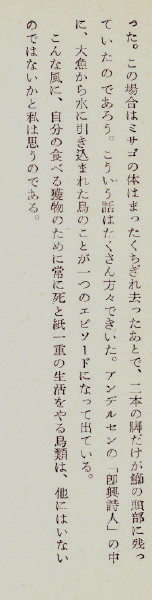 った。この場合はミサゴの体はまったくちぎれ去ったあとで、二本の脚だけが鰤の頭部に残っ
ていたのであろう。こういう話はたくさん方々できいた。アンデルセンの「即興詩人」の中
に、大魚から水に引き込まれた鳥のことが一つのエピソードになって出ている。
こんな風に、自分の食べる獲物のために常に死と紙一重の生活をやる鳥類は、他にはいない
のではないかと私は思うのである。